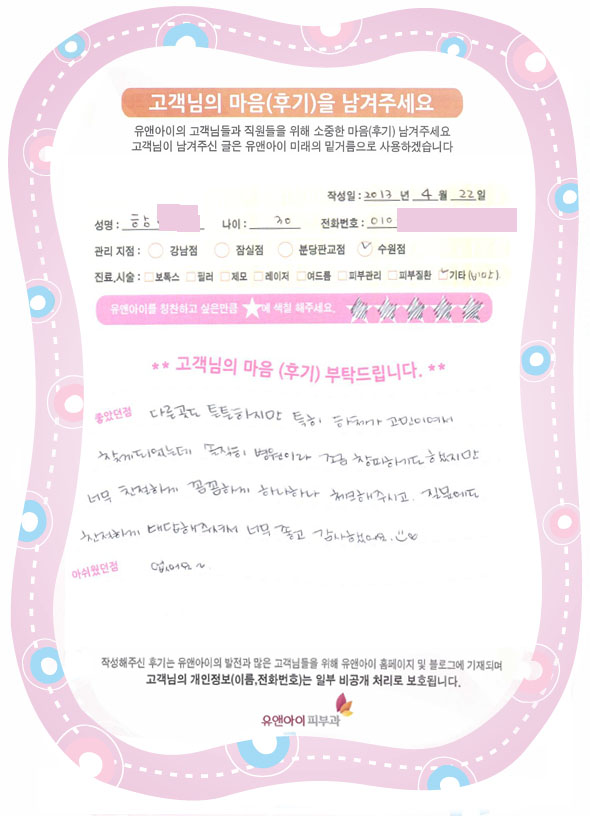 고객님의 마음(후기)을 남겨주세요
유앤아이의 고객님들과 직원들을 위해 소중한 마음(후기) 남겨주세요
고객님이 남겨주신 글은 유앤아이 미래의 밑거름으로 사용하겠습니다
작성일 : 2013 년 4 월 22 일
성명 : 나이 : 30 전화번호 : 010
관리 지점 : 강남점 잠실점 분당판교점 수원점
진료,시술 : 보톡스 필러 제모 레이저 여드름 피부관리 피부질환 기타 (비만)
유앤아이를 칭찬하고 싶은만큼 ★에 색칠 해주세요.
** 고객님의 마음 (후기) 부탁드립니다. **
좋았던점 다른곳도 튼튼하지만 특히 하체가 고민이여서
찾게되었는데 솔직히 병원이라 조금 창피하기도 했지만
너무 친절하게 꼼꼼하게 하나하나 체크해주시고. 질문에도
친절하게 대답해주셔서 너무 좋고 감사했어요.
아쉬웠던점 없어요~
작성해주신 후기는 유앤아이의 발전과 많은 고객님들을 위해 유앤아이 홈페이지 및 블로그에 기재되며
고객님의 개인정보(이름,전화번호)는 일부 비공개 처리로 보호됩니다.
유앤아이피부과